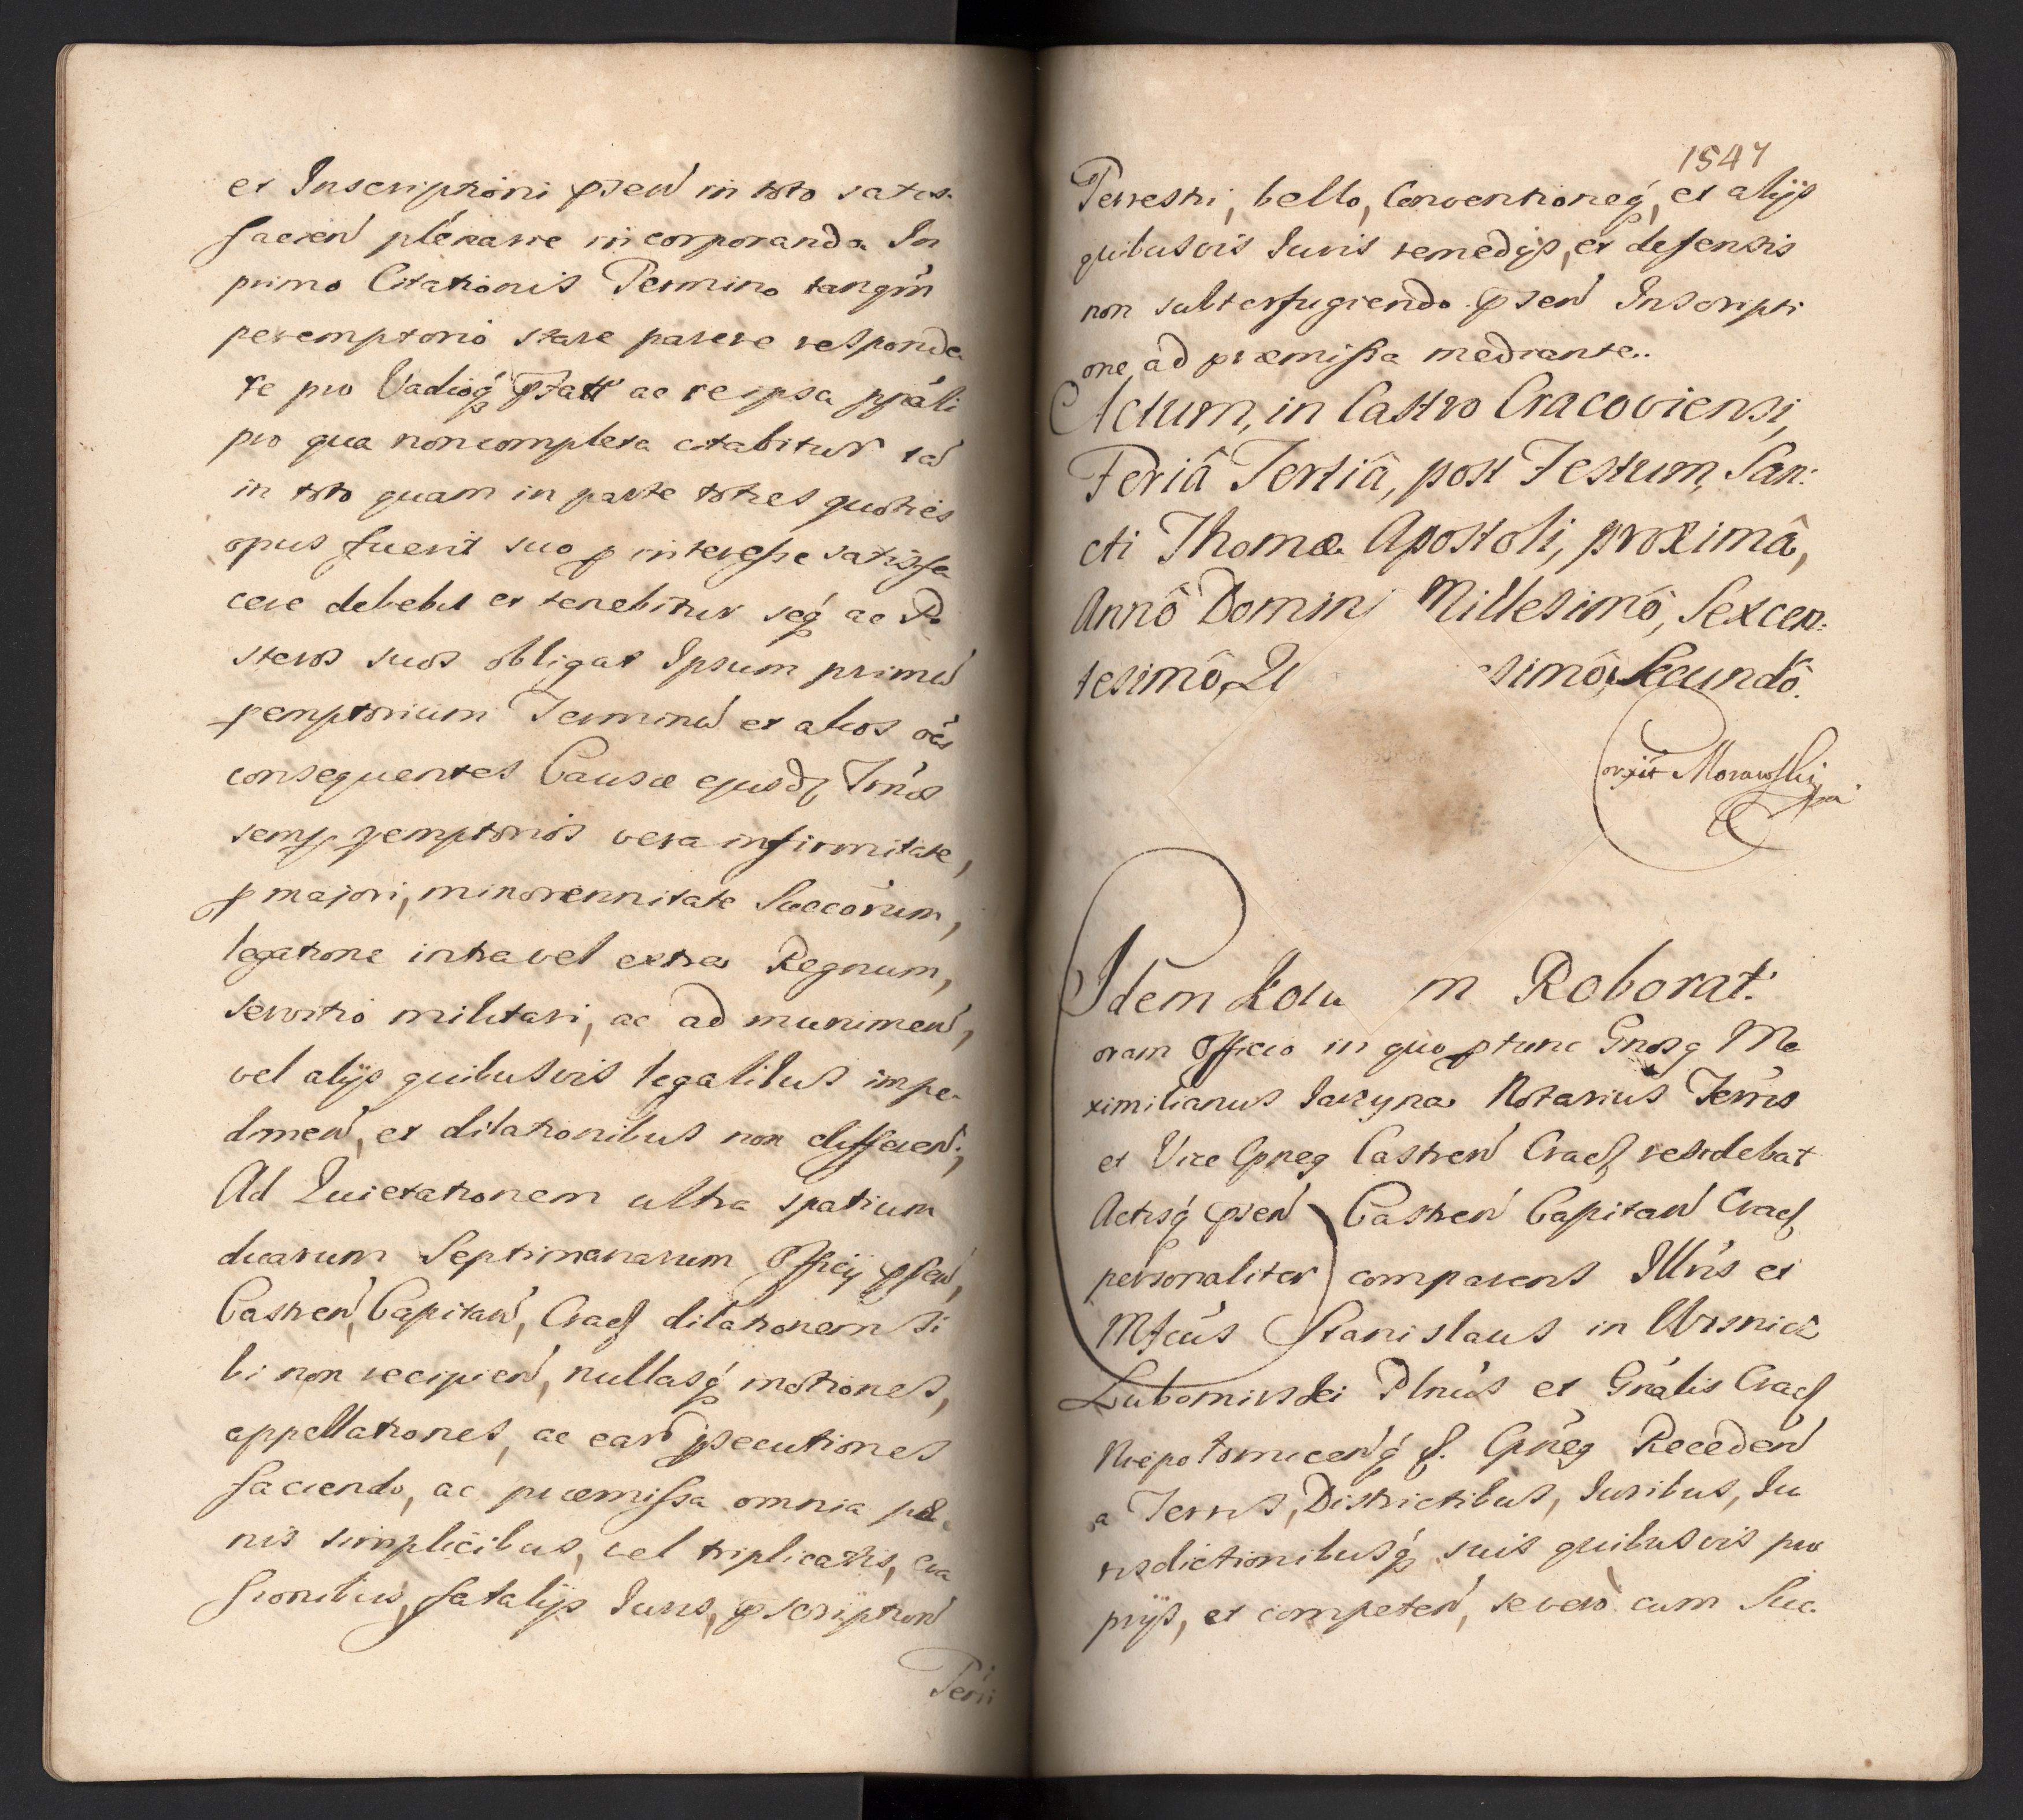 et Inscriptioni pñseñ in toto satis-
facieñ plenarie incorporanda In
primo Citationis Termino tanqm̃
peremptorio stare parere responde-
re pro Vadioq́ę ac re ipsa ppáli
pro qua non completa citabitur tā
in toto quam in parte toties quoties
opus fuerit suo p interesse satisfa
cere debebit et tenebitur seq́ę ac Po
steros suos obligat Ipsum primũ
pemptorium Terminũ et alios oẽs
consequentes Causæ ejusd Tr̃nos
semp pemptorios vera infirmitate,
p majori, minorennitate Succorum,
legatione intra vel extra Regnum,
servitio militari, ac ad munimeñ,
vel alijs quibusvis legalibus impe-
dimeñ, et dilationibus non differeñ;
Ad Quietationem ultra spatium
duarum Septimanarum Officij pseñ,
Castreñ, Capitañ, Crac dilationem si
bi non recipieñ, nullasq́ę motiones,
appellationes, ac earũ psecutiones
faciendo, ac præmissa omnia pæ-
nis simplicibus, vel triplicatis, eva
sionibus, fatalijs Iuris, pscriptioñ
Terri
1547
Terrestri, bello, Conventioneq́ę, et alijs
quibusvis Iuris remedijs, et defensis
non subterfugiendo pseñ Inscripti
one ad præmissa mediante..
Actum, in Castro Cracoviensi,
Feriâ Tertiâ, post Festum, San:
cti Thomæ Apostoli, proximâ,
Annô Domin Millesimô, Sexcen:
tesimô, Qu simô, Secundô.
Corxit Morawski
mp
Idem Rotu m Roborat:
oram Officio in quo ptunc Gnosq Ma
ximilianus Jarzyna Notarius Terris
et Vice Cpneq Castreñ Crac residebat
Actisq́ pseñ Castreñ Capitañ Crac
personaliter comparens Illris et
Mfcus Stanislaus in Wisnicz
Lubomirski Plnus et Gnális Crac
Niepotomiceñq́ Cpneq Recedeñ
a Terris, Districtibus, Iuribus, Iu
risdictionibusq́ę suis quibusvis pro
prijs, et competeñ, se vero cum Suc.